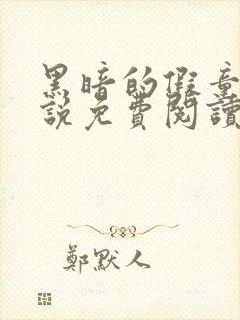 黑暗的假童
說免費閱讀
鄭默人